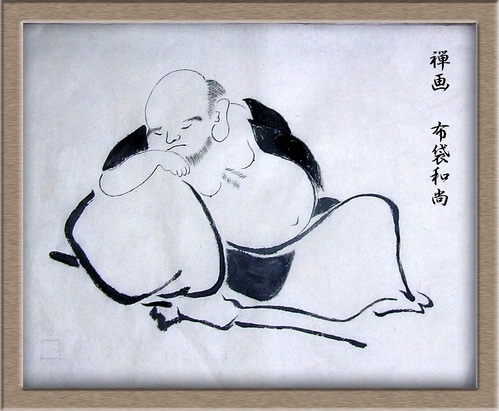 禅画　布袋和尚